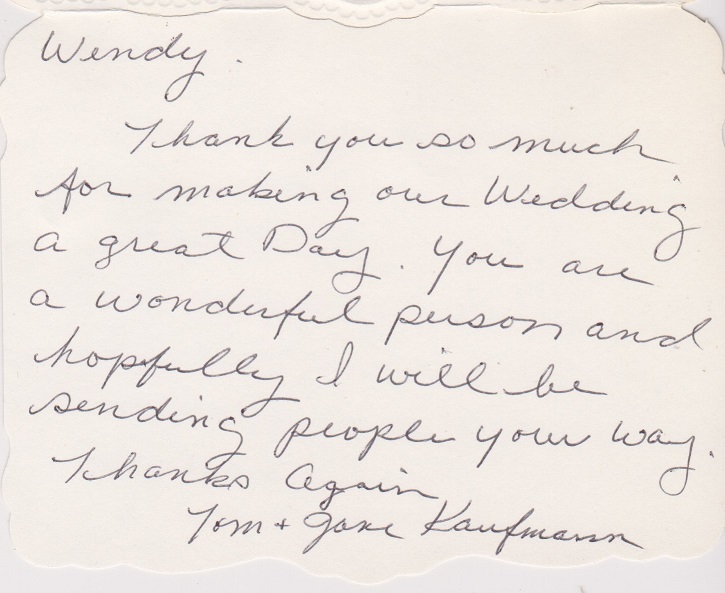 Wendy.
Thank you so much
for making our Wedding
a great Day. You are
a wonderful person and
hopfully I will be
sending people your way.
Thanks Again
Tom + Jane Kaufmann